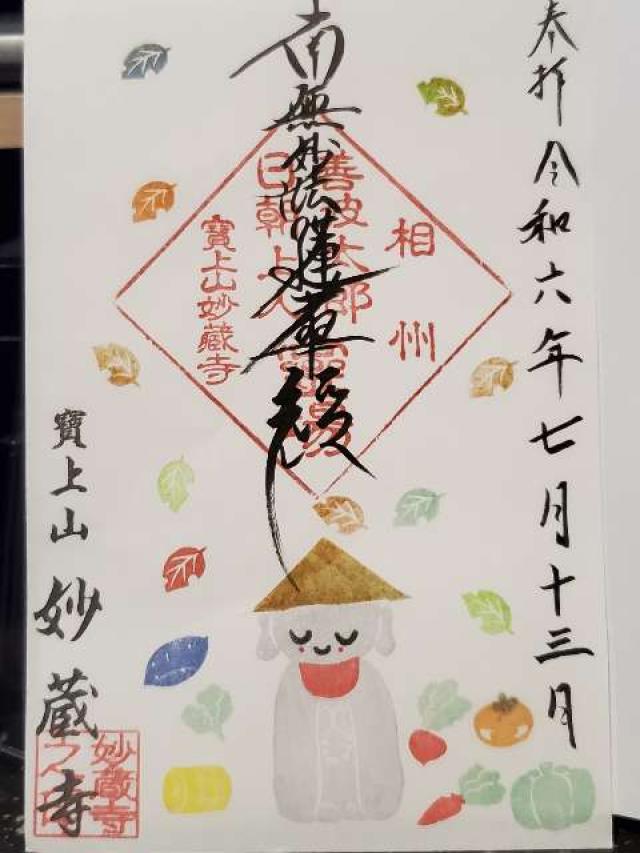 奉拝 令和六年七月十三月
南無妙法蓮華経
相州
善波太郎霊場
日朝上人
寶上山妙藏寺
寶上山 妙蔵寺
妙蔵寺